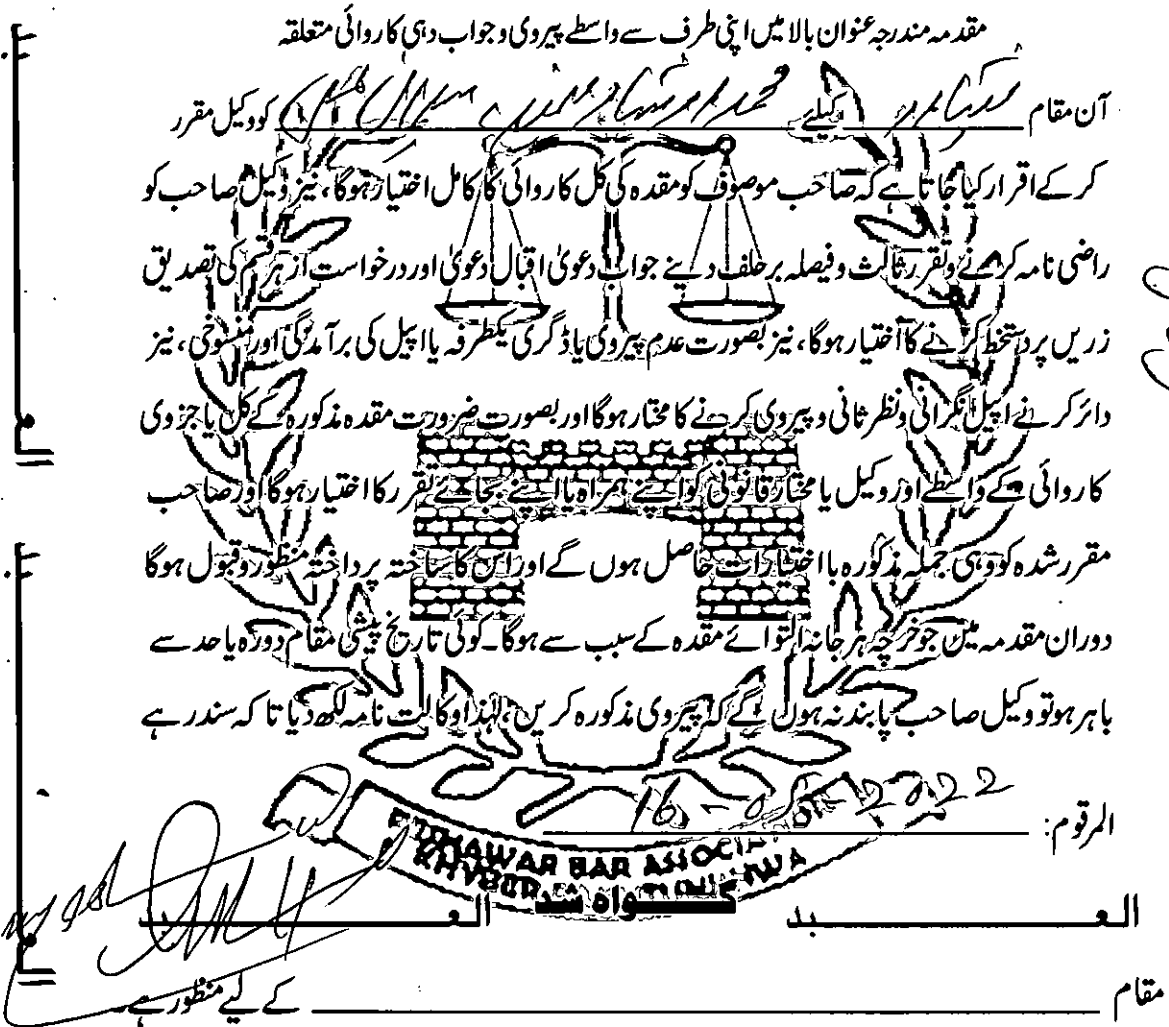 مقدمہ مندرجہ عنوان بالا میں اپنی طرف سے واسطے پیروی و جواب دہی کاروائی متعلقہ
آن مقام پشاور کیلئے کو وکیل مقرر
کر کے اقرار کیا جاتا ہے کہ صاحب موصوف کو مقدہ کی کل کاروائی کا کامل اختیار ہوگا ، نیز وکیل صاحب کو
راضی نامہ کرنے وتقرر ثالث و فیصلہ بر حلف دینے جواب دعویٰ اقبال دعویٰ اور درخواست از ہر قسم کی تصدیق
زریں پر دستخط کرنے کا اختیار ہوگا ، نیز بصورت عدم پیروی یا ڈگری یکطرفہ یا اپیل کی برآمدگی اور منسوخی ، نیز
دائر کرنے اپیل نگرانی و نظر ثانی و پیروی کرنے کا مختار ہوگا اور بصورت ضرورت مقدہ مذکورہ کے کل یا جزوی
کاروائی کے واسطے اور وکیل یا مختار قانونی کو اپنے ہمراہ یا اپنے بجائے تقرر کا اختیار ہوگا اور صاحب
مقرر شدہ کو وہی جملہ مذکورہ با اختیارات حاصل ہوں گے اور اس کا ساختہ پرداختہ منظور و قبول ہوگا
دوران مقدمہ میں جو خرچہ ہر جانہ التوائے مقدہ کے سبب سے ہوگا ۔ کوئی تاریخ پیشی مقام دورہ یا حد سے
باہر ہو تو وکیل صاحب پابند نہ ہوں گے کہ پیروی مذکورہ کریں ۔ لہٰذا وکالت نامہ لکھ دیا تا کہ سند رہے
المرقوم: 16-05-2022
PESHAWAR BAR ASSOCIATION
KHYBER PAKHTUNKHWA
العبد گواہ شد العبد
مقام کے لیے منظور ہے